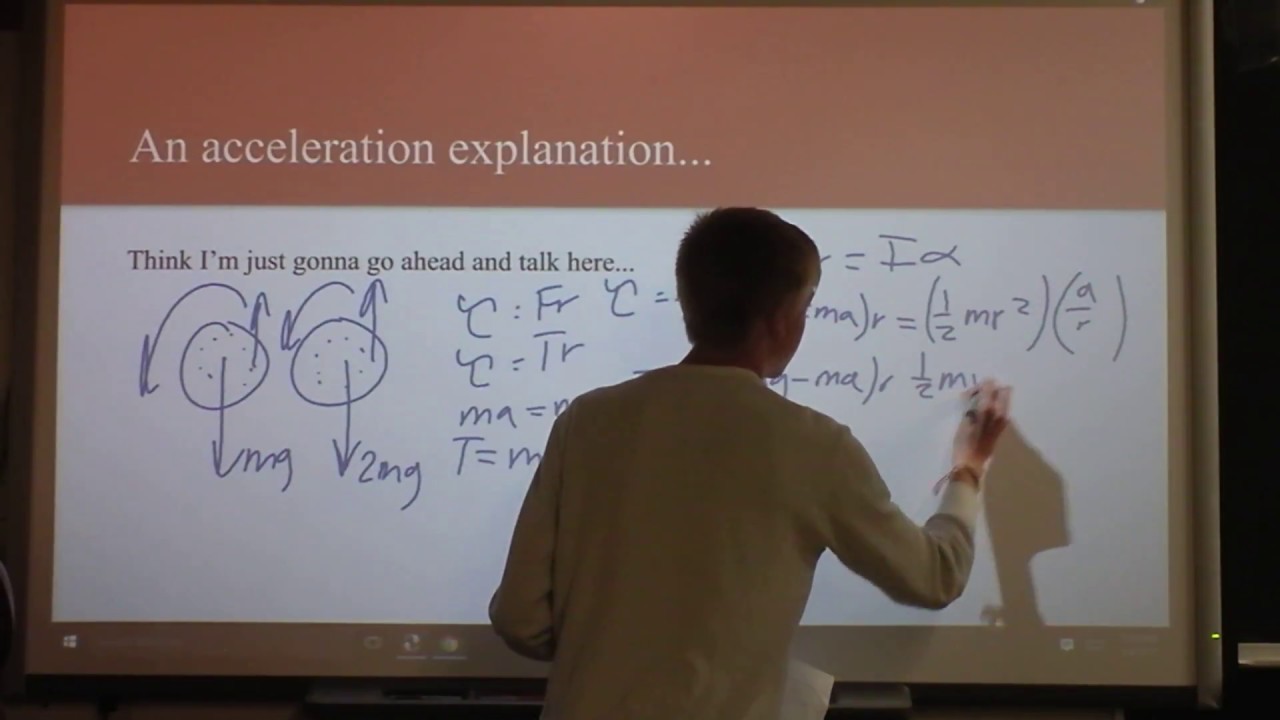 An acceleration explanation...
Think I'm just gonna go ahead and talk here...
τ = Fr
τ = Tr
ma =
T = m
mg
2mg
τ =
r = Iα
ma)r = (1/2 mr²)(a/r)
-ma)r 1/2 m